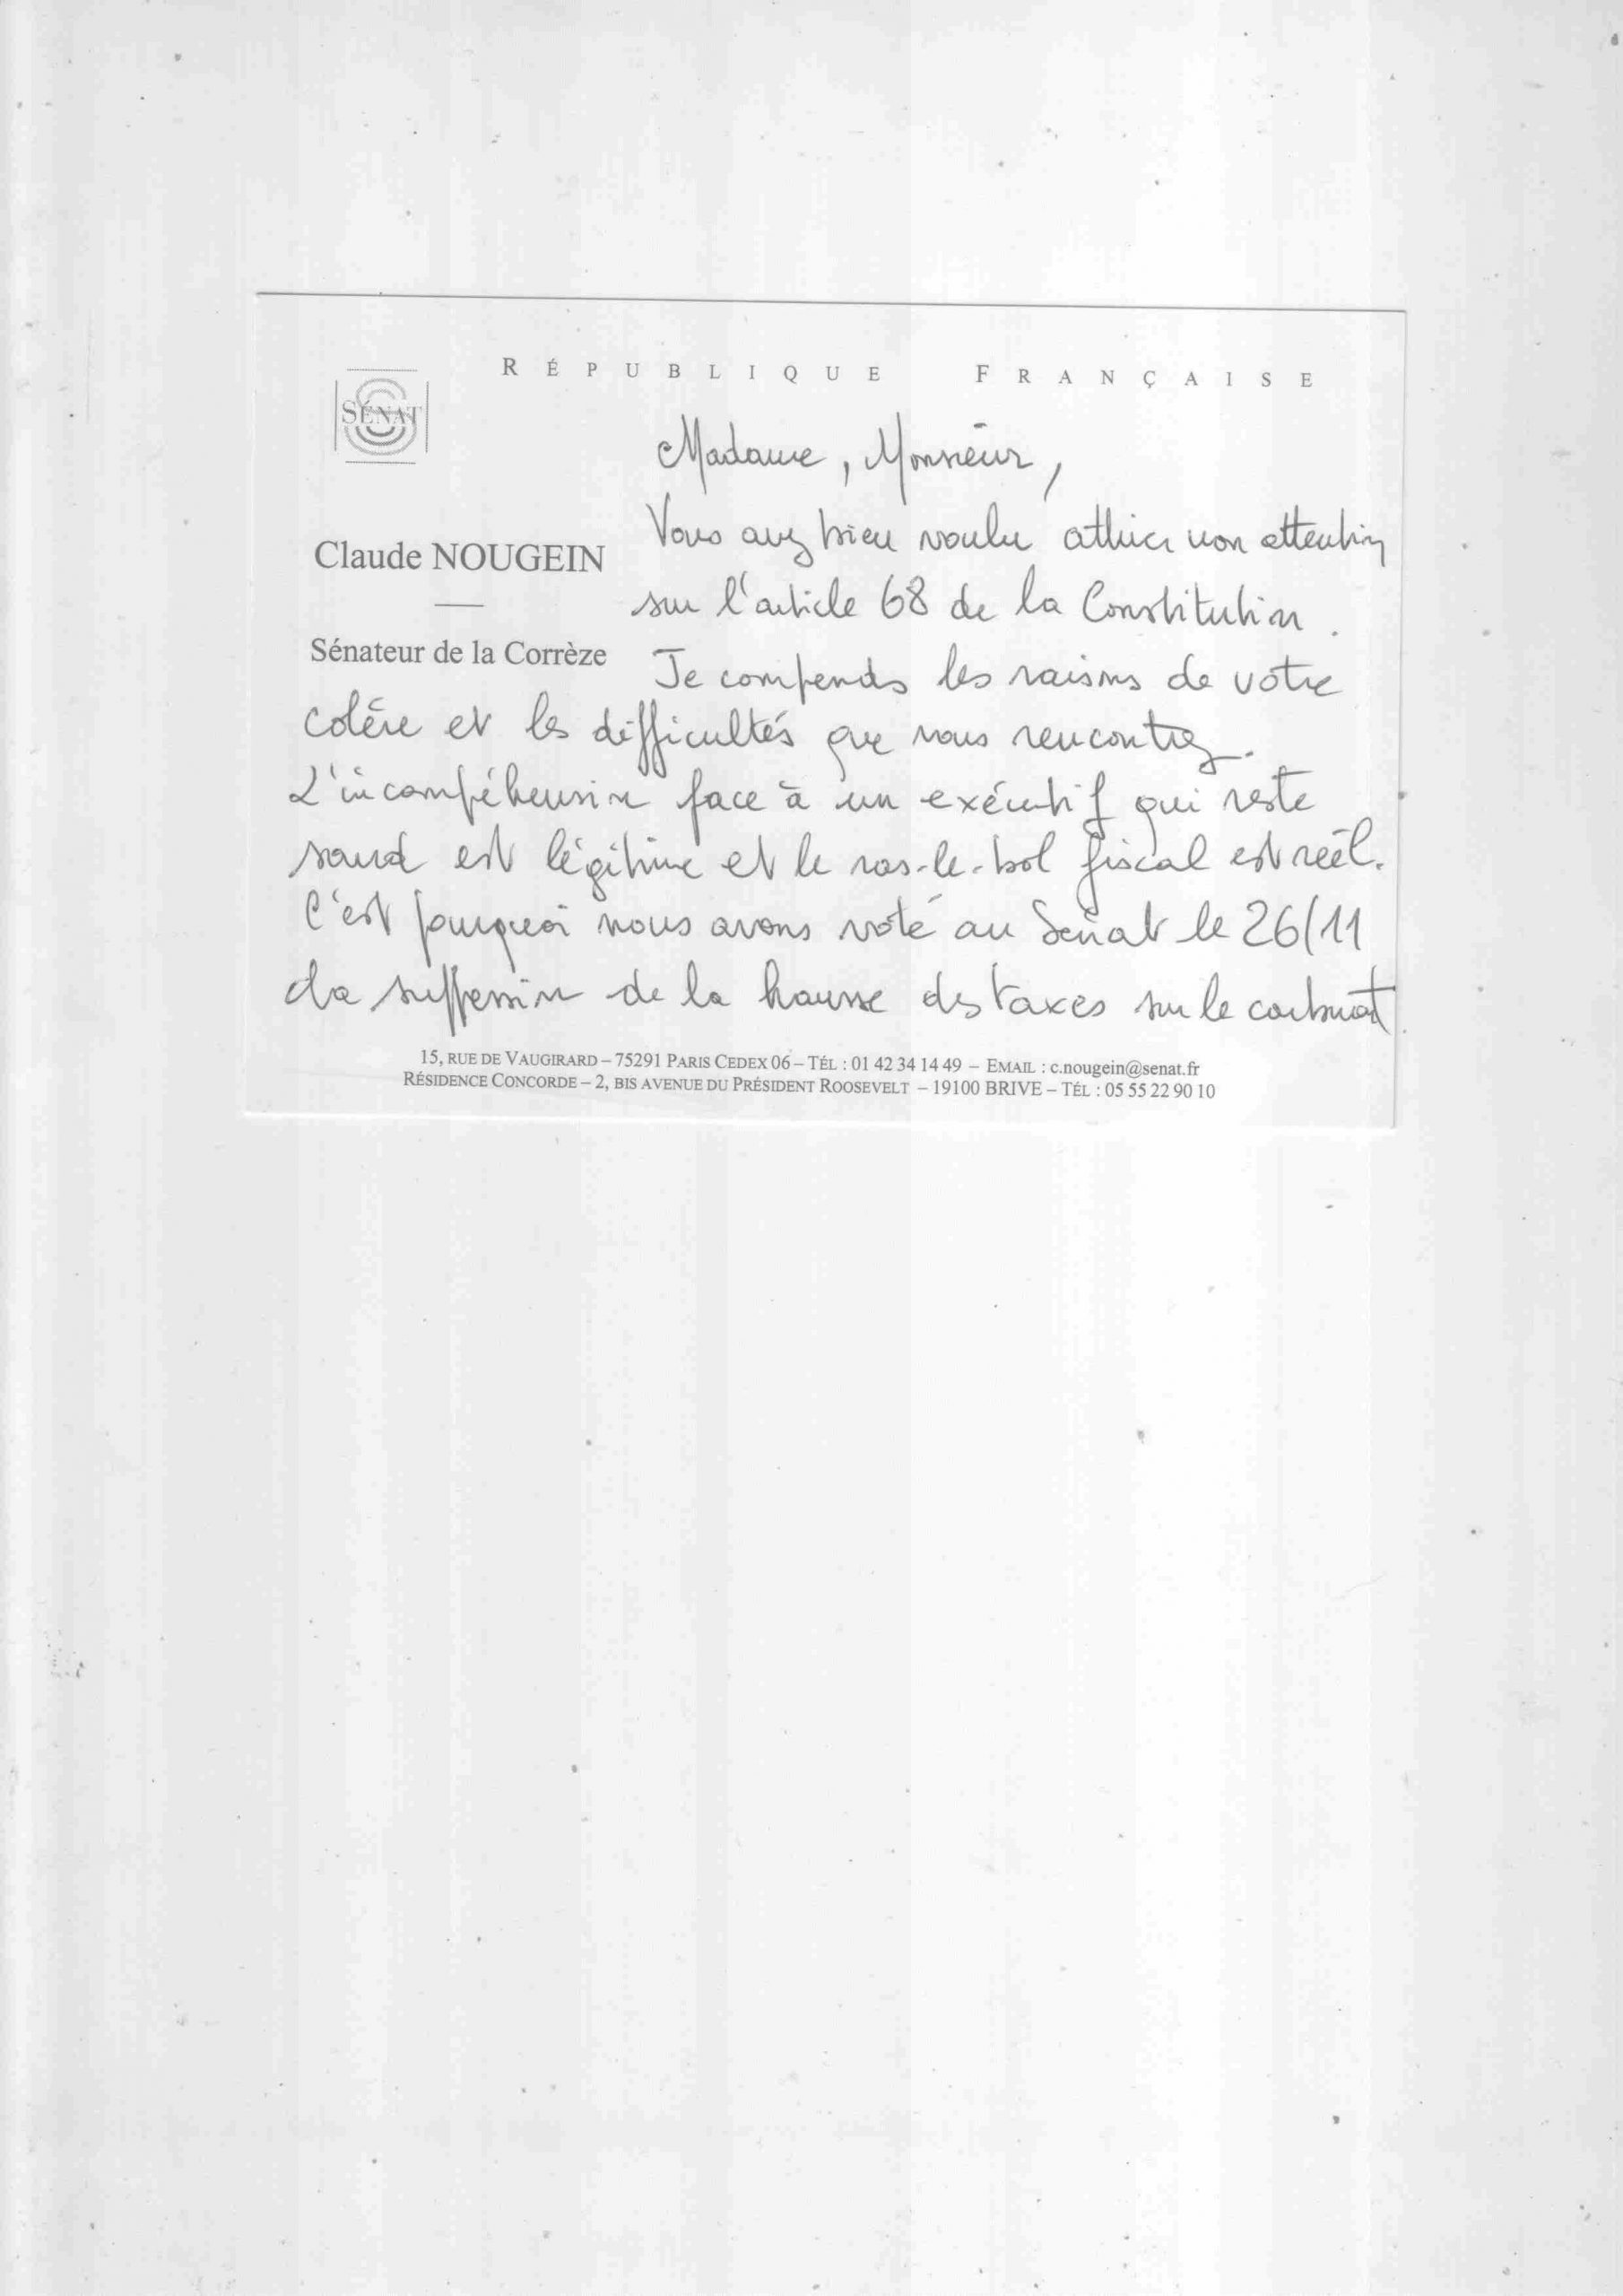 RÉPUBLIQUE FRANÇAISE
SÉNAT
Madame, Monsieur,
Claude NOUGEIN
Vous avez bien voulu attirer mon attention
sur l'article 68 de la Constitution.
Sénateur de la Corrèze
Je comprends les raisons de votre
colère et les difficultés que vous rencontrez.
L'incompréhension face à un exécutif qui reste
sourd est légitime et le ras-le-bol fiscal est réel.
C'est pourquoi nous avons voté au Sénat le 26/11
la suppression de la hausse des taxes sur le carburant
15, RUE DE VAUGIRARD – 75291 PARIS CEDEX 06 – TÉL : 01 42 34 14 49 – EMAIL : c.nougein@senat.fr
RÉSIDENCE CONCORDE – 2, BIS AVENUE DU PRÉSIDENT ROOSEVELT – 19100 BRIVE – TÉL : 05 55 22 90 10